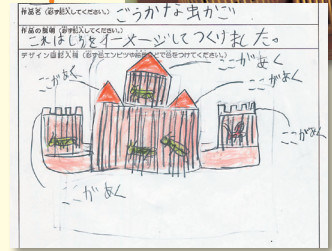 作品名（必ず記入してください。） ごうかな虫かご
作品の説明（必ず記入してください。）
これはしろをイメージしてつくりました。
デザイン画記入欄（必ず色エンピツや絵具などで色をつけてください。）
ここがあく
ここがあく
ここがあく
ここがあく
ここがあく